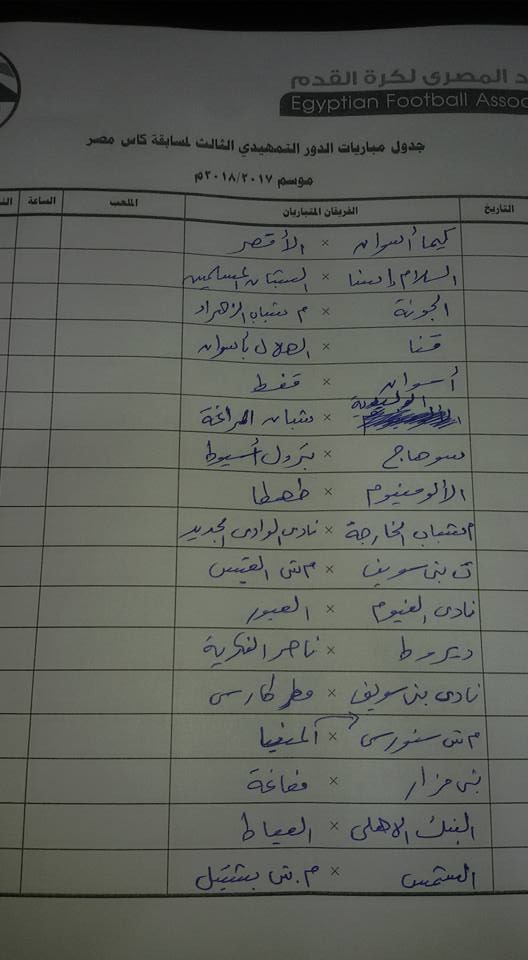 د المصرى لكرة القدم
Egyptian Football Assoc
جدول مباريات الدور التمهيدي الثالث لمسابقة كاس مصر
موسم ٢٠١٨/٢٠١٧م
التاريخ الفريقان المتباريان الملعب الساعة
كيما أسوان × الأقصر
السلام إسنا × الشبان المسلمين
الجونة × م شباب الزهراء
قنا × الهلال بأسوان
أسوان × قفط
× شبان المراغة
سوهاج × بترول أسيوط
الألومنيوم × طهطا
م شباب الخارجة × نادى الوادى الجديد
ت بنى سويف × م ش القيس
نادى الفيوم × العبور
ديروط × ناصر الفكرية
نادى بنى سويف × مطر طارس
م ش سنورس × المنيا
بنى مزار × مغاغة
البنك الاهلى × العياط
الشمس × م. ش بشتيل